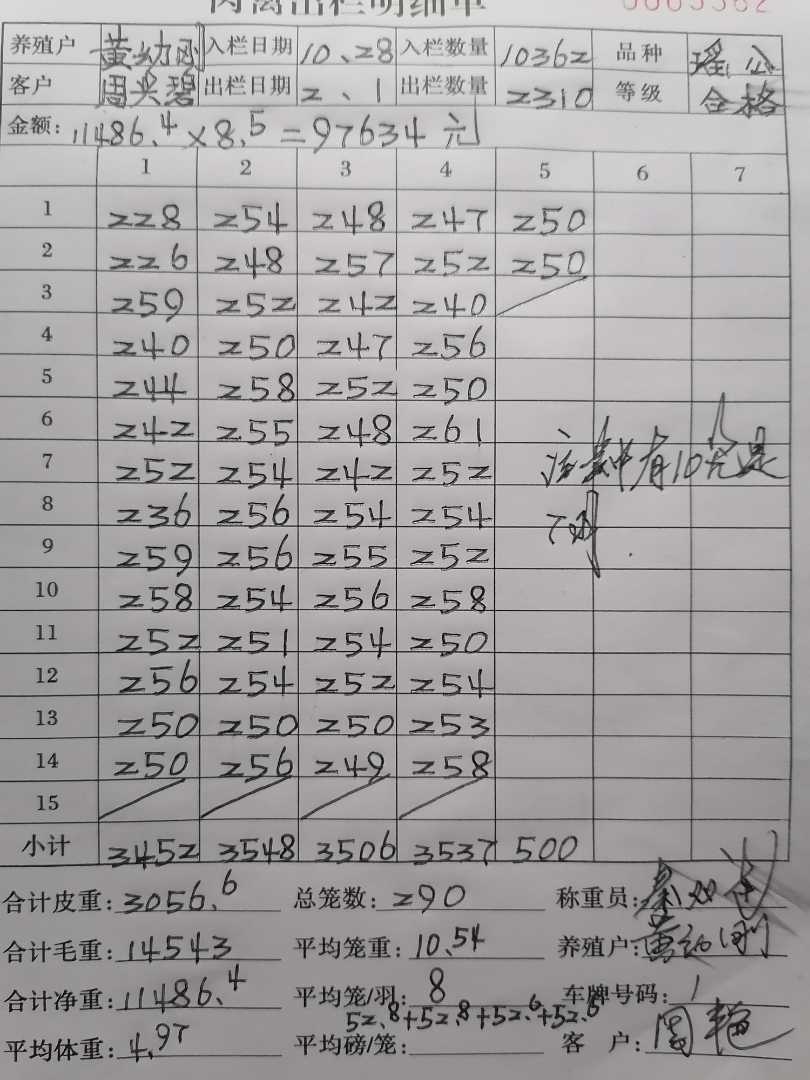 肉禽出栏明细单
养殖户 黄幼刚 入栏日期 10、28 入栏数量 10362 品种 瑶公
客户 周兴碧 出栏日期 2、1 出栏数量 2310 等级 合格
金额: 11486.4×8.5=97634元
1 2 3 4 5 6 7
1 228 254 248 247 250
2 226 248 257 252 250
3 259 252 242 240
4 240 250 247 256
5 244 258 252 250
6 242 255 248 261
7 252 254 242 252 该表中有10元是
8 236 256 254 254
9 259 256 255 252
10 258 254 256 258
11 252 251 254 250
12 256 254 252 254
13 250 250 250 253
14 250 256 249 258
15
小计 3452 3548 3506 3537 500
合计皮重: 3056.6 总笼数: 290 称重员:
合计毛重: 14543 平均笼重: 10.54 养殖户: 黄幼刚
合计净重: 11486.4 平均笼/羽: 8 车牌号码: 1
52.8+52.8+52.6+52.6
平均体重: 4.97 平均磅/笼: 客户: 周艳